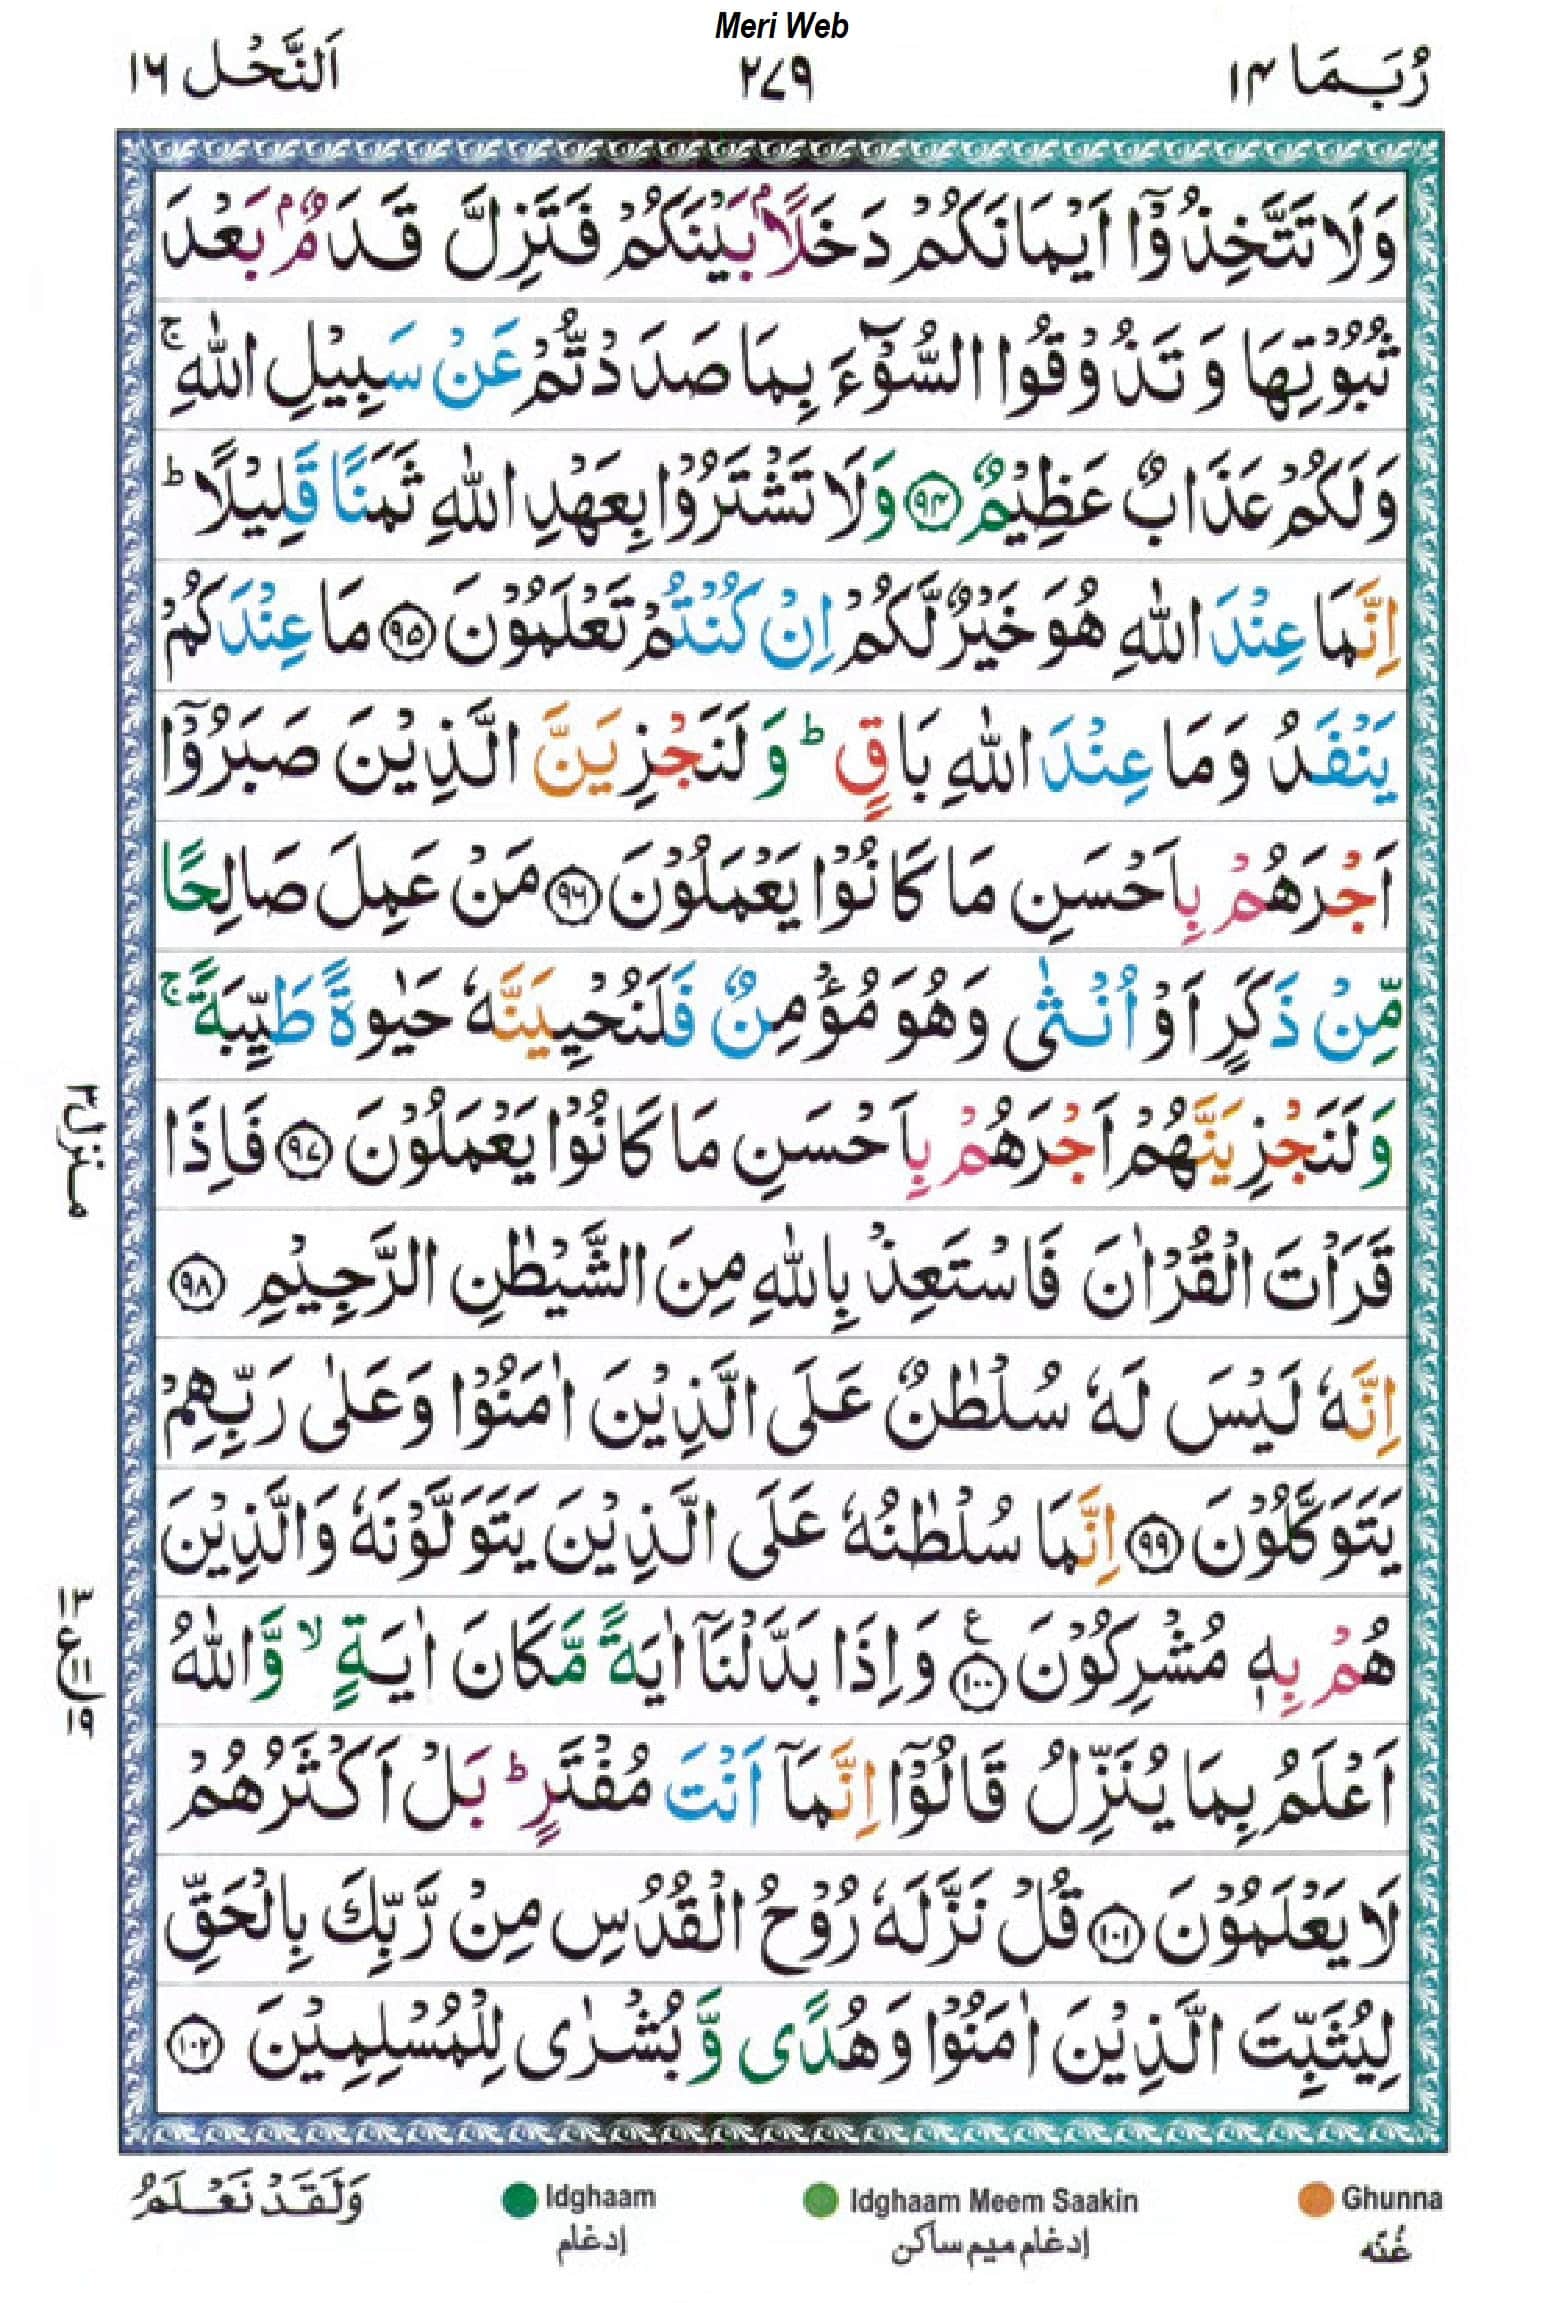 Meri Web
رُبَمَا ١٤
٢٧٩
اَلنَّحْل ١٦
وَلَا تَتَّخِذُوْۤا اَيْمَانَكُمْ دَخَلًاۢ بَيْنَكُمْ فَتَزِلَّ قَدَمٌۢ بَعْدَ
ثُبُوْتِهَا وَ تَذُوْقُوا السُّوْۤءَ بِمَا صَدَدْتُّمْ عَنْ سَبِيْلِ اللّٰهِ ۚ
وَلَكُمْ عَذَابٌ عَظِيْمٌ ﴿٩٤﴾ وَلَا تَشْتَرُوْا بِعَهْدِ اللّٰهِ ثَمَنًا قَلِيْلًا ؕ
اِنَّمَا عِنْدَ اللّٰهِ هُوَ خَيْرٌ لَّكُمْ اِنْ كُنْتُمْ تَعْلَمُوْنَ ﴿٩٥﴾ مَا عِنْدَكُمْ
يَنْفَدُ وَمَا عِنْدَ اللّٰهِ بَاقٍ ؕ وَلَنَجْزِيَنَّ الَّذِيْنَ صَبَرُوْۤا
اَجْرَهُمْ بِاَحْسَنِ مَا كَانُوْا يَعْمَلُوْنَ ﴿٩٦﴾ مَنْ عَمِلَ صَالِحًا
مِّنْ ذَكَرٍ اَوْ اُنْثٰى وَهُوَ مُؤْمِنٌ فَلَنُحْيِيَنَّهٗ حَيٰوةً طَيِّبَةً ۚ
وَلَنَجْزِيَنَّهُمْ اَجْرَهُمْ بِاَحْسَنِ مَا كَانُوْا يَعْمَلُوْنَ ﴿٩٧﴾ فَاِذَا
قَرَاْتَ الْقُرْاٰنَ فَاسْتَعِذْ بِاللّٰهِ مِنَ الشَّيْطٰنِ الرَّجِيْمِ ﴿٩٨﴾
اِنَّهٗ لَيْسَ لَهٗ سُلْطٰنٌ عَلَى الَّذِيْنَ اٰمَنُوْا وَعَلٰى رَبِّهِمْ
يَتَوَكَّلُوْنَ ﴿٩٩﴾ اِنَّمَا سُلْطٰنُهٗ عَلَى الَّذِيْنَ يَتَوَلَّوْنَهٗ وَالَّذِيْنَ
هُمْ بِهٖ مُشْرِكُوْنَ ﴿١٠٠﴾ ع وَاِذَا بَدَّلْنَاۤ اٰيَةً مَّكَانَ اٰيَةٍ ۙ وَّاللّٰهُ
اَعْلَمُ بِمَا يُنَزِّلُ قَالُوْۤا اِنَّمَاۤ اَنْتَ مُفْتَرٍ ؕ بَلْ اَكْثَرُهُمْ
لَا يَعْلَمُوْنَ ﴿١٠١﴾ قُلْ نَزَّلَهٗ رُوْحُ الْقُدُسِ مِنْ رَّبِّكَ بِالْحَقِّ
لِيُثَبِّتَ الَّذِيْنَ اٰمَنُوْا وَهُدًى وَّبُشْرٰى لِلْمُسْلِمِيْنَ ﴿١٠٢﴾
منزل ٣
١٣
ع ١١
١٩
Ghunna
غُنّه
Idghaam Meem Saakin
إدغام ميم ساكن
Idghaam
إدغام
وَلَقَدْ نَعْلَمُ